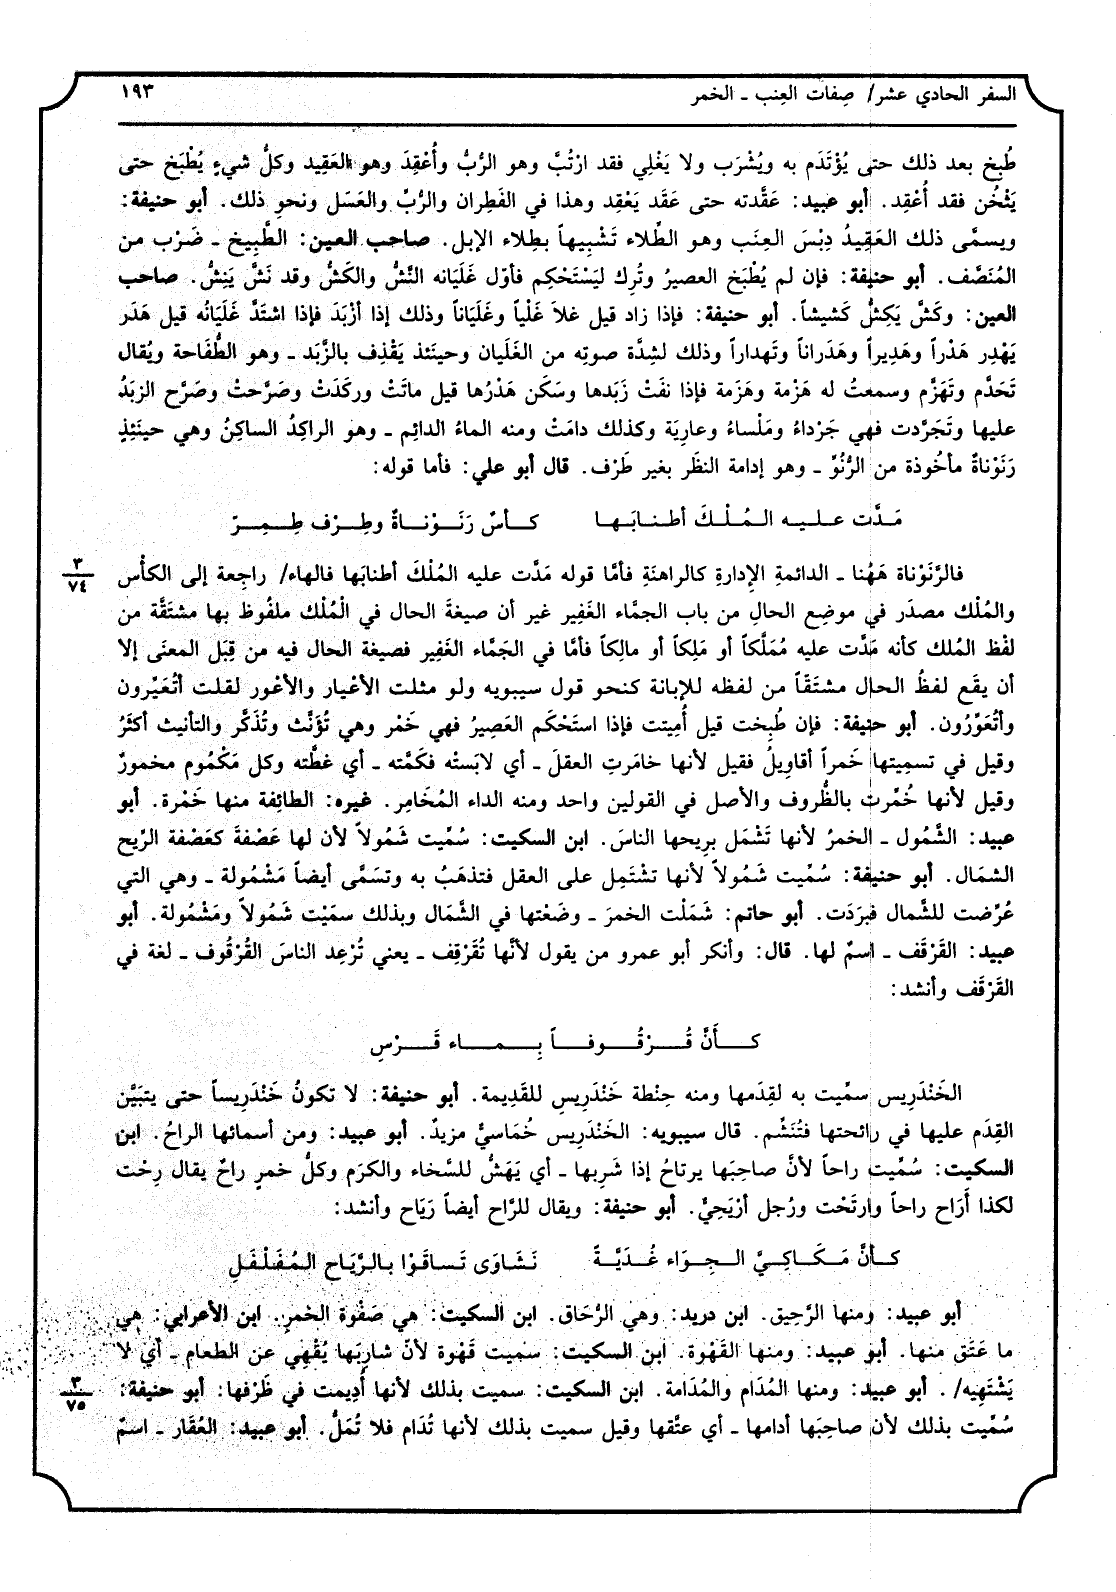 السفر الحادي عشر/ صِفات العِنب ـ الخمر
١٩٣
طُبِخ بعد ذلك حتى يُؤْتَدَم به ويُشْرَب ولا يَغْلِي فقد ارْتُبَّ وهو الرُّبُّ وأُعْقِدَ وهو العَقِيد وكلُّ شيءٍ يُطْبَخ حتى
يَثْخُن فقد أُعْقِد. أبو عبيد: عَقَّدته حتى عَقَد يَعْقِد وهذا في القَطِران والرُّبِّ والعَسَل ونحوِ ذلك. أبو حنيفة:
ويسمَّى ذلك العَقِيدُ دِبْسَ العِنَب وهو الطِّلاء تَشْبِيهاً بطِلاء الإبل. صاحب العين: الطَّبِيخ ـ ضَرْب من
المُنَصَّف. أبو حنيفة: فإن لم يُطْبَخ العصيرُ وتُرِك ليَسْتَحْكِم فأوّل غَلَيَانه النَّشُّ والكَشُّ وقد نَشَّ يَنِشُّ. صاحب
العين: وكَشَّ يَكِشُّ كَشيشاً. أبو حنيفة: فإذا زاد قيل غلاَ غَلْياً وغَلَيَاناً وذلك إذا أزْبَدَ فإذا اشتَدَّ غَلَيَانُه قيل هَدَر
يَهْدِر هَدْراً وهَدِيراً وهَدَراناً وتَهداراً وذلك لشِدَّة صوتِه من الغَلَيان وحينَئذ يَقْذِف بالزَّبَد ـ وهو الطُّفَاحة ويُقال
تَحَدَّم وتَهَزَّم وسمعتُ له هَزْمة وهَزَمة فإذا نفَتْ زَبَدها وسَكَن هَدْرُها قيل ماتَتْ وركَدَتْ وصَرَّحتْ وصَرَّح الزبَدُ
عليها وتَجَرَّدت فهي جَرْداءُ ومَلْساءُ وعارِيَة وكذلك دامَتْ ومنه الماءُ الدائِم ـ وهو الراكِدُ الساكِنُ وهي حينَئِذٍ
رَنَوْناةٌ مأخُوذة من الرُّنُوِّ ـ وهو إدامة النظَر بغير طَرْف. قال أبو علي: فأما قوله:
مَـدَّت عـلـيـه الـمُـلْـكَ أطـنـابَـهـا كـأسٌ رَنَـوْنـاةٌ وطِـرْف طِـمِـرّ
فالرَّنَوْناة هَهُنا ـ الدائمةِ الإدارةِ كالراهنَةِ فأمَّا قوله مَدَّت عليه المُلْكَ أطنابَها فالهاء/ راجِعة إلى الكأْس
٣
٧٤
والمُلْك مصدَر في موضِع الحالِ من باب الجمَّاء الغَفِير غير أن صيغةَ الحال في الْمُلْك ملفُوظ بها مشتَقَّة من
لفْظ المُلك كأنه مَدَّت عليه مُمَلَّكاً أو مَلِكاً أو مالِكاً فأمَّا في الجَمَّاء الغَفِير فصيغة الحال فيه من قِبَل المعنَى إلا
أن يقَع لفظُ الحال مشتَقَاً من لفظه للإبانة كنحو قول سيبويه ولو مثلت الأعْيار والأعْور لقلت أتُعَيِّرون
وأتُعَوِّرُون. أبو حنيفة: فإن طُبِخت قيل أُمِيتت فإذا استَحْكَم العَصيرُ فهي خَمْر وهي تُؤَنَّث وتُذَكَّر والتأنيث أكثَرُ
وقيل في تسمِيتها خَمراً أقاوِيلُ فقيل لأنها خامَرتِ العقلَ ـ أي لابَستْه فكَمَّته ـ أي غطَّته وكل مَكْمُوم مخمورٌ
وقيل لأنها خُمِّرت بالظُّروف والأصل في القولين واحد ومنه الداء المُخَامِر. غيره: الطائِفة منها خَمْرة. أبو
عبيد: الشَّمُول ـ الخمرُ لأنها تَشْمَل بِرِيحها الناسَ. ابن السكيت: سُمِّيت شَمُولاً لأن لها عَصْفةً كعَصْفة الرِّيح
الشمَال. أبو حنيفة: سُمِّيت شَمُولاً لأنها تشْتَمِل على العقل فتذهَبُ به وتسَمَّى أيضاً مَشْمُولة ـ وهي التي
عُرِّضت للشَّمال فبرَدَت. أبو حاتم: شَمَلْت الخمرَ ـ وضَعْتها في الشَّمَال وبذلك سمِّيَتْ شَمُولاً ومَشْمُولة. أبو
عبيد: القَرْقَف ـ اسمٌ لها. قال: وأنكر أبو عمرو من يقول لأنَّها تُقَرْقِف ـ يعني تُرْعِد الناسَ القُرْقُوف ـ لغة في
القَرْقَف وأنشد:
كــأنَّ قُــرْقُــوفــاً بِــمــاء قَــرْسِ
الخَنْدَرِيس سمِّيت به لقِدَمها ومنه حِنْطة خَنْدَرِيسٍ للقَدِيمة. أبو حنيفة: لا تكونُ خَنْدَرِيساً حتى يتبَيَّن
القِدَم عليها في رائحتها فتُنَشَّم. قال سيبويه: الخَنْدَرِيس خُمَاسيٌّ مزيدٌ. أبو عبيد: ومن أسمائها الراحُ. ابن
السكيت: سُمِّيت راحاً لأنَّ صاحِبَها يرتاحُ إذا شَرِبها ـ أي يَهَشُّ للسَّخاء والكرَم وكلُّ خمرٍ راحٌ يقال رِحْت
لكذا أَرَاح راحاً وارتَحْت ورُجل أرْيَحِيٌّ. أبو حنيفة: ويقال للرَّاح أيضاً رَيَاح وأنشد:
كـأنَّ مَـكَـاكِـيَّ الـجِـوَاء غُـدَيَّـةً نَـشَـاوَى تَـسـاقَـوْا بـالـرَّيَـاح الـمُـفَـلْـفَـلِ
أبو عبيد: ومنها الرَّحِيق. ابن دريد: وهي الرُّحَاق. ابن السكيت: هي صَفْوة الخمرِ. ابن الأعرابي: هي
ما عَتَق منها. أبو عبيد: ومنها القَهْوة. ابن السكيت: سميت قَهْوة لأنّ شارِبَها يُقْهِي عن الطعام ـ أي لا
يَشْتَهِيه/. أبو عبيد: ومنها المُدَام والمُدَامة. ابن السكيت: سميت بذلك لأنها أُدِيمت في ظَرْفها: أبو حنيفة:
٣
٧٥
سُمِّيت بذلك لأن صاحِبَها أدامها ـ أي عتَّقها وقيل سميت بذلك لأنها تُدَام فلا تُمَلُّ. أبو عبيد: العُقَار ـ اسمٌ